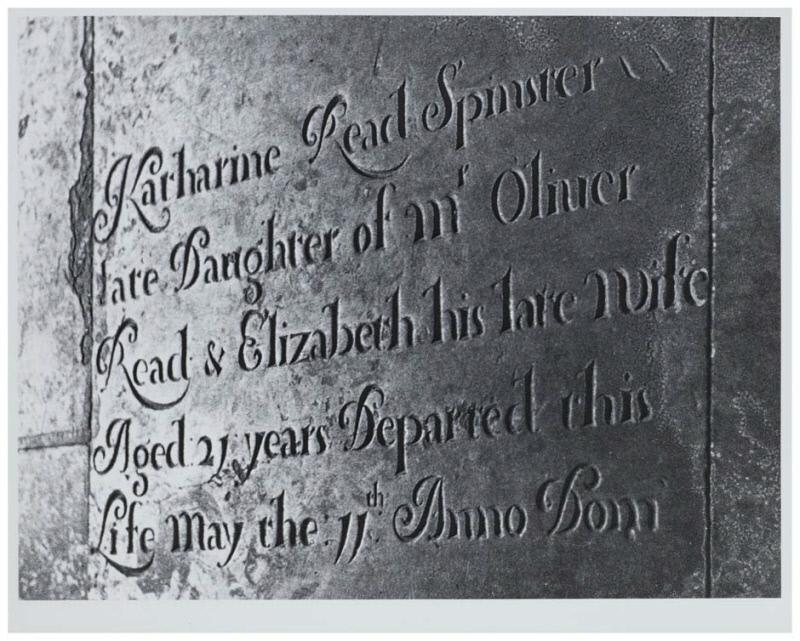 Katharine Read Spinster
late Daughter of Mr Oliver
Read & Elizabeth his late Wife
Aged 21 years Departed this
Life May the 11th Anno Domi